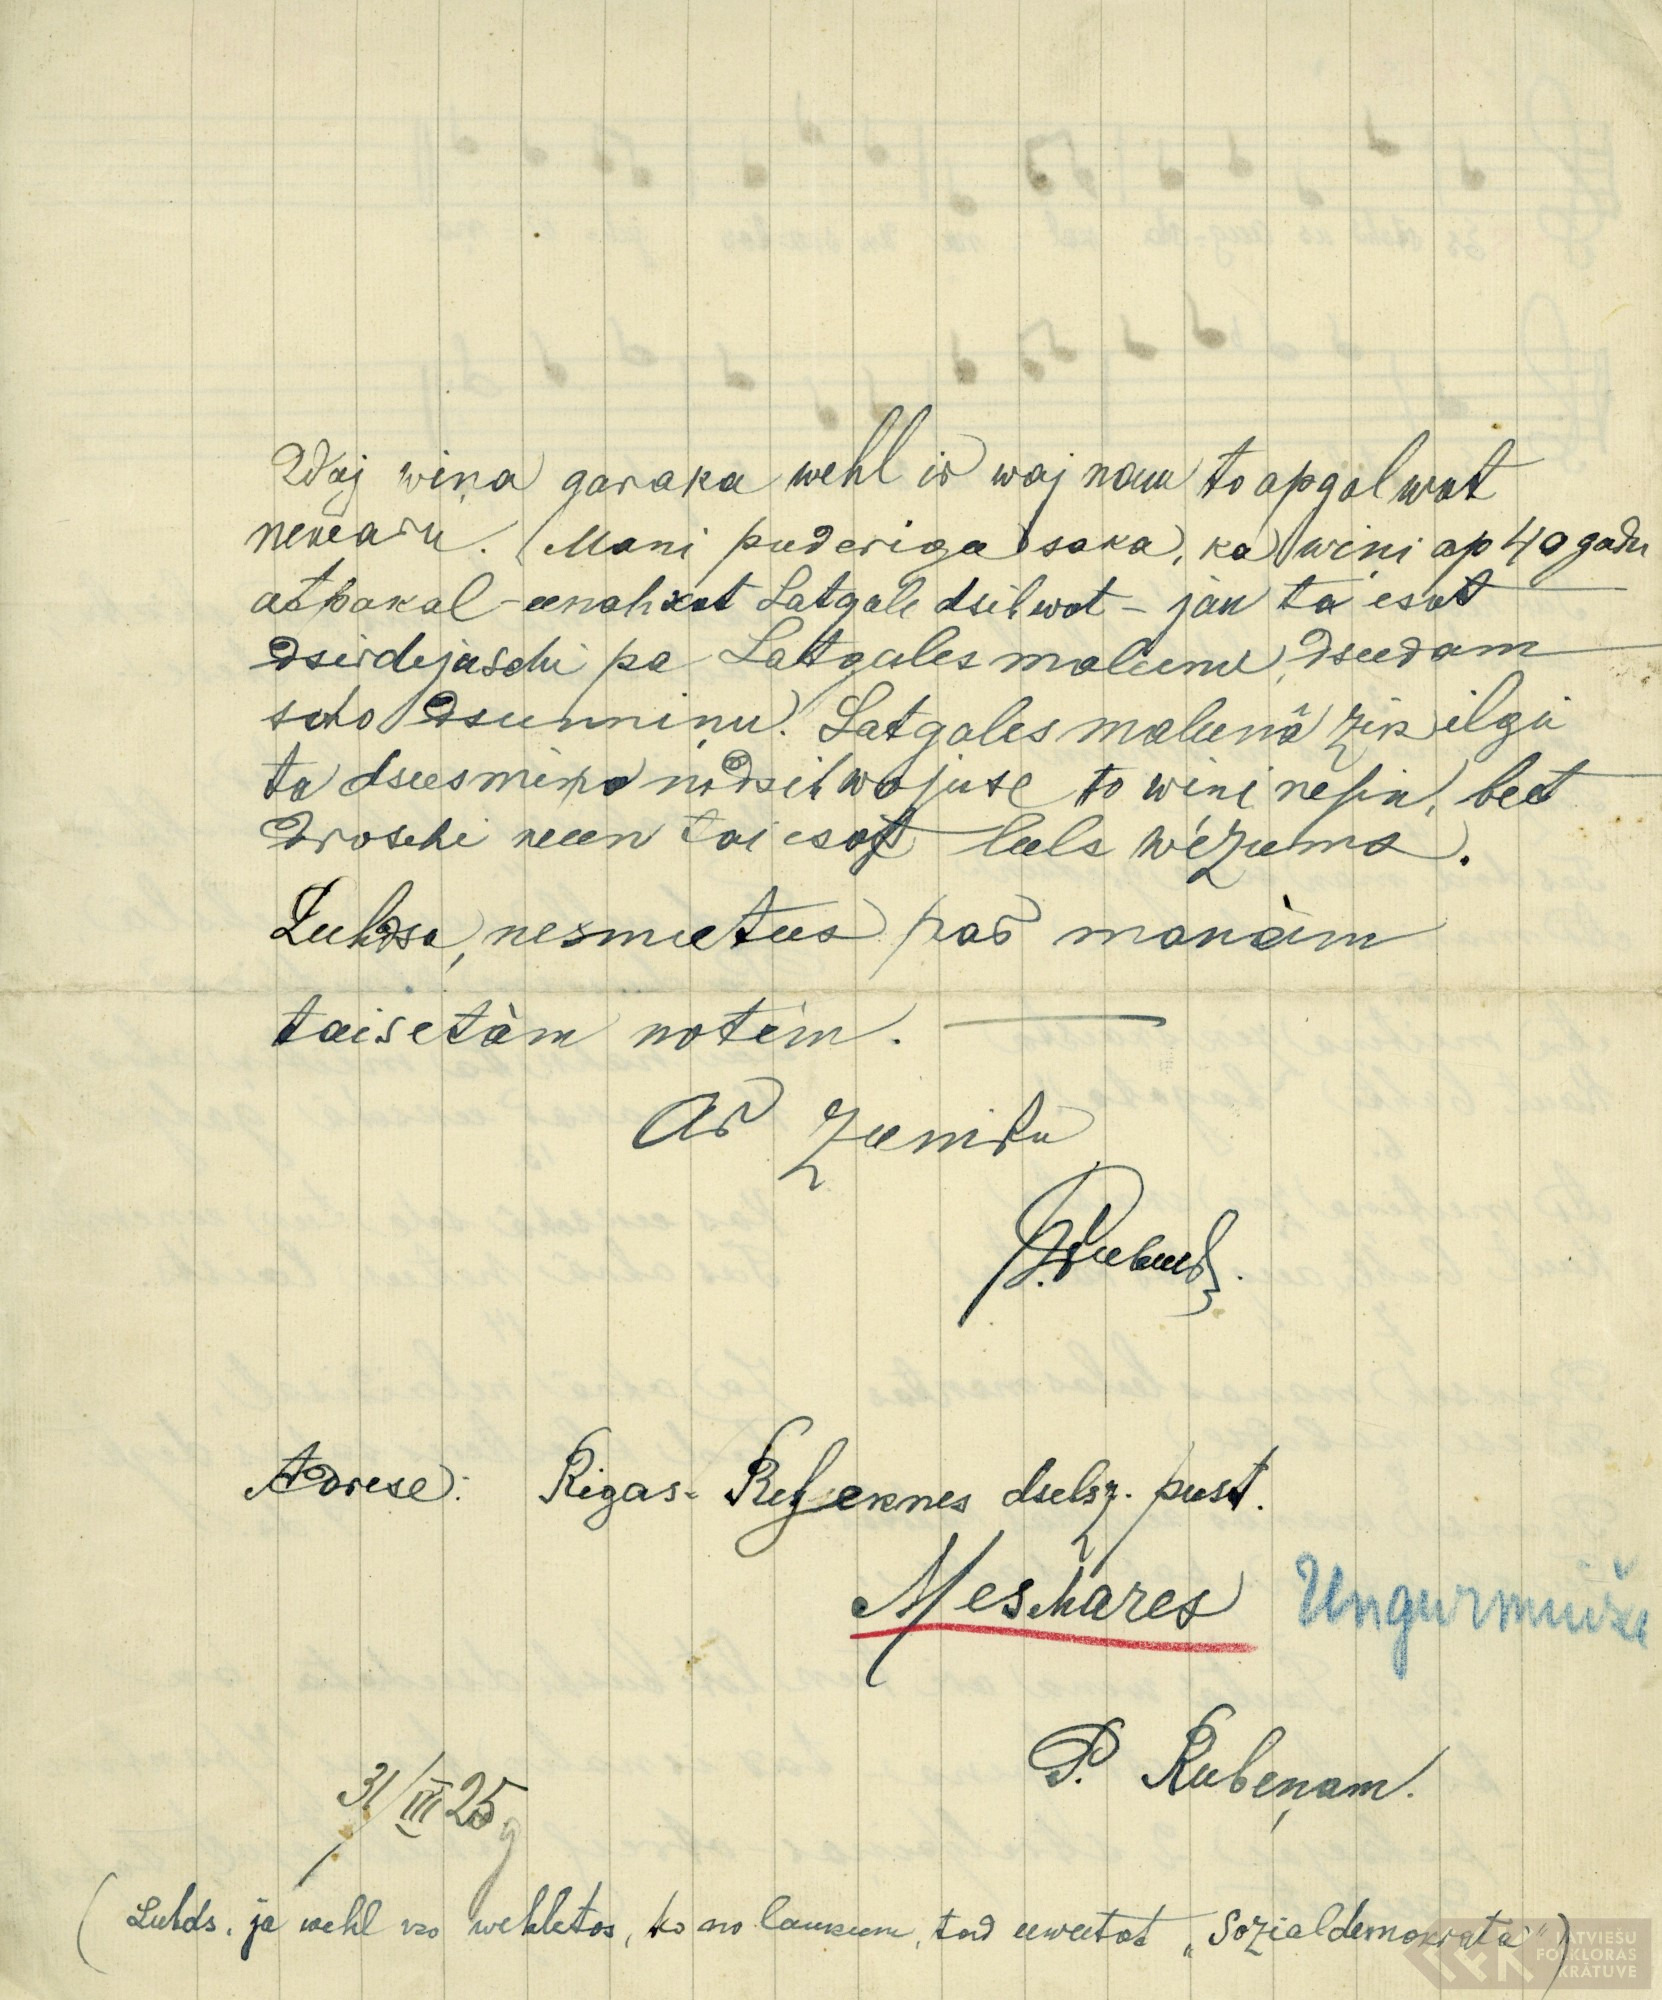 Waj wiņa garaka wehl ir waj nau to apgalwot
neweru. Mani puderiga saka, ka wiņi ap 40 gadu
atpakal – eenahkot Latgalē dsihwot – jau tā esot
dsirdejuschi pa Latgales maleenu, dseedam
scho dseesmiņu. Latgales maleenā zik ilgi
ta dseesmiņa nodsihwojuse to wiņi nesin, bet
droschi ween tai esot leels wezums.
Luhdsu, nesmeetees par manàm
taisetàm notèm.
Ar zeeņibu
Adrese: Rigas-Reseknes dselsz. pust.
Meschares Ungurmuiža
P. Rubeņam.
31/III 25 g
(Luhds. ja wehl ko wehletos, ko no laukeem, tad eeweetot „Sozialdemokratā")
LATVIEŠU
FOLKLORAS
KRĀTUVE